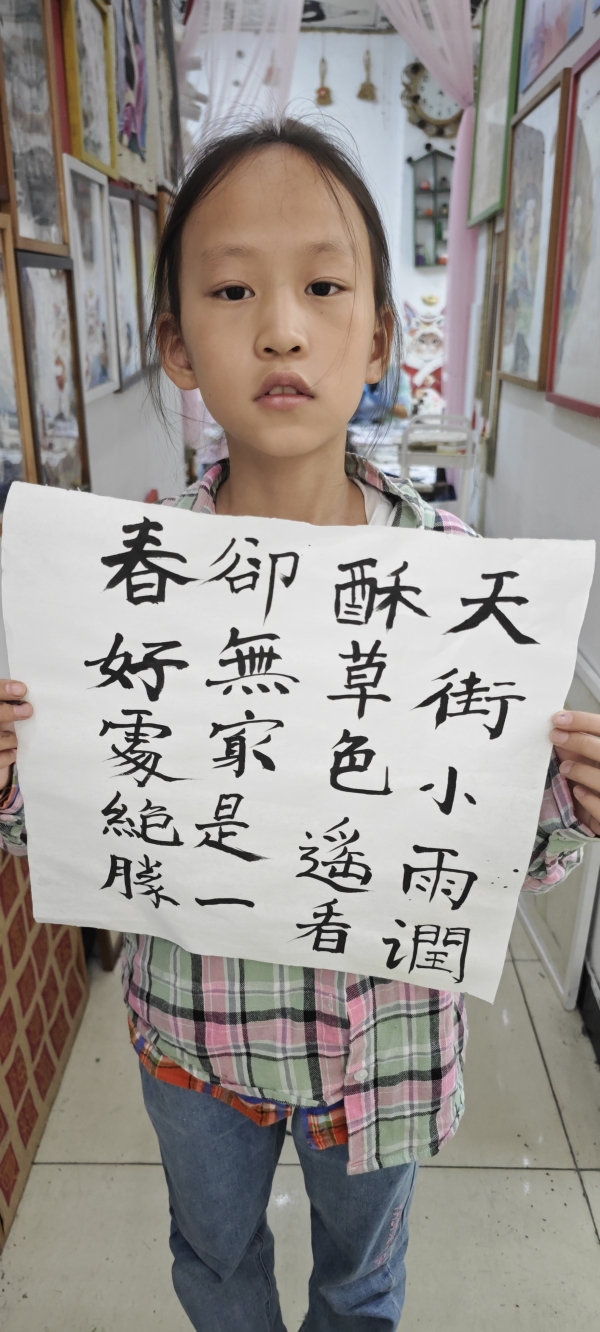 天街小雨潤
酥草色遥看
卻無家是一
春好處絕勝